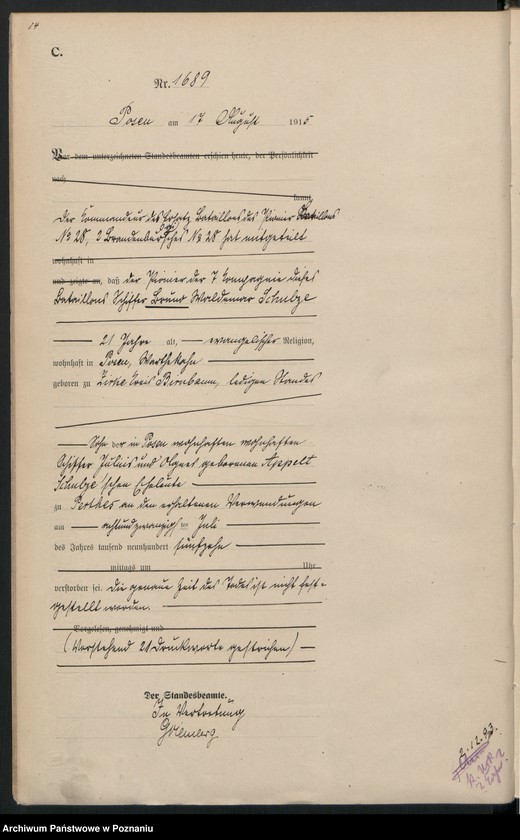 14
C.
Nr. 1689
Posen am 17 August 1915
Vor dem unterzeichneten Standesbeamten erschien heute, der Persönlichkeit
nach
kannt,
Der Commandeur des Ersatz Bataillons des Pionier Bataillons
No 28, 2 Brandenburgisches No 28 hat mitgeteilt
wohnhaft in
und zeigte an, daß der Pionier der 7 Compagnie dieses
Bataillons Schiffer Bruno Waldemar Schulze
21 Jahre alt, evangelischer Religion,
wohnhaft in Posen, Warthekahn
geboren zu Zirke Kreis Birnbaum, ledigen Standes
Sohn der in Posen wohnhaften wohnhaften
Schiffer Julius und geborenen Appelt
Schulze'schen Eheleute
zu an den erhaltenen Verwundungen
am achtundzwanzigsten Juli
des Jahres tausend neunhundert fünfzehn
mittags um Uhr
verstorben sei. Die genaue Zeit des Todes ist nicht fest-
gestellt worden.
Vorgelesen, genehmigt und
(Vorstehend Druckworte gestrichen)
Der Standesbeamte.
In Vertretung
2.12.93.
Archiwum Państwowe w Poznaniu